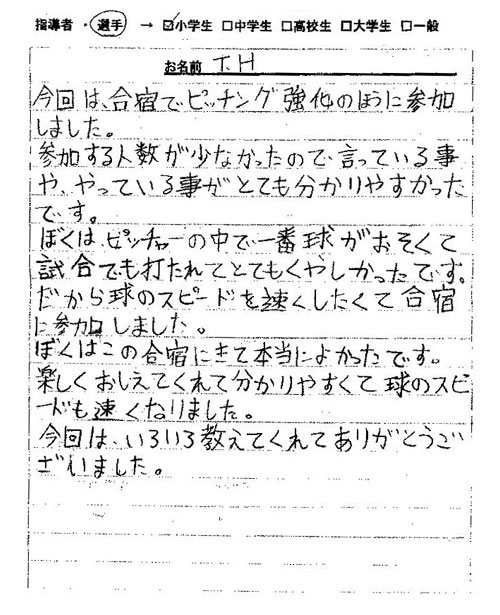 指導者・選手 → ☑小学生 □中学生 □高校生 □大学生 □一般
お名前 T.H
今回は、合宿でピッチング強化のほうに参加
しました。
参加する人数が少なかったので言っている事
や、やっている事がとても分かりやすかった
です。
ぼくはピッチャーの中で一番球がおそくて
試合でも打たれてとてもくやしかったです。
だから球のスピードを速くしたくて合宿
に参加しました。
ぼくはこの合宿にきて本当によかったです。
楽しくおしえてくれて分かりやすくて球のスピ
ードも速くなりました。
今回は、いろいろ教えてくれてありがとうご
ざいました。